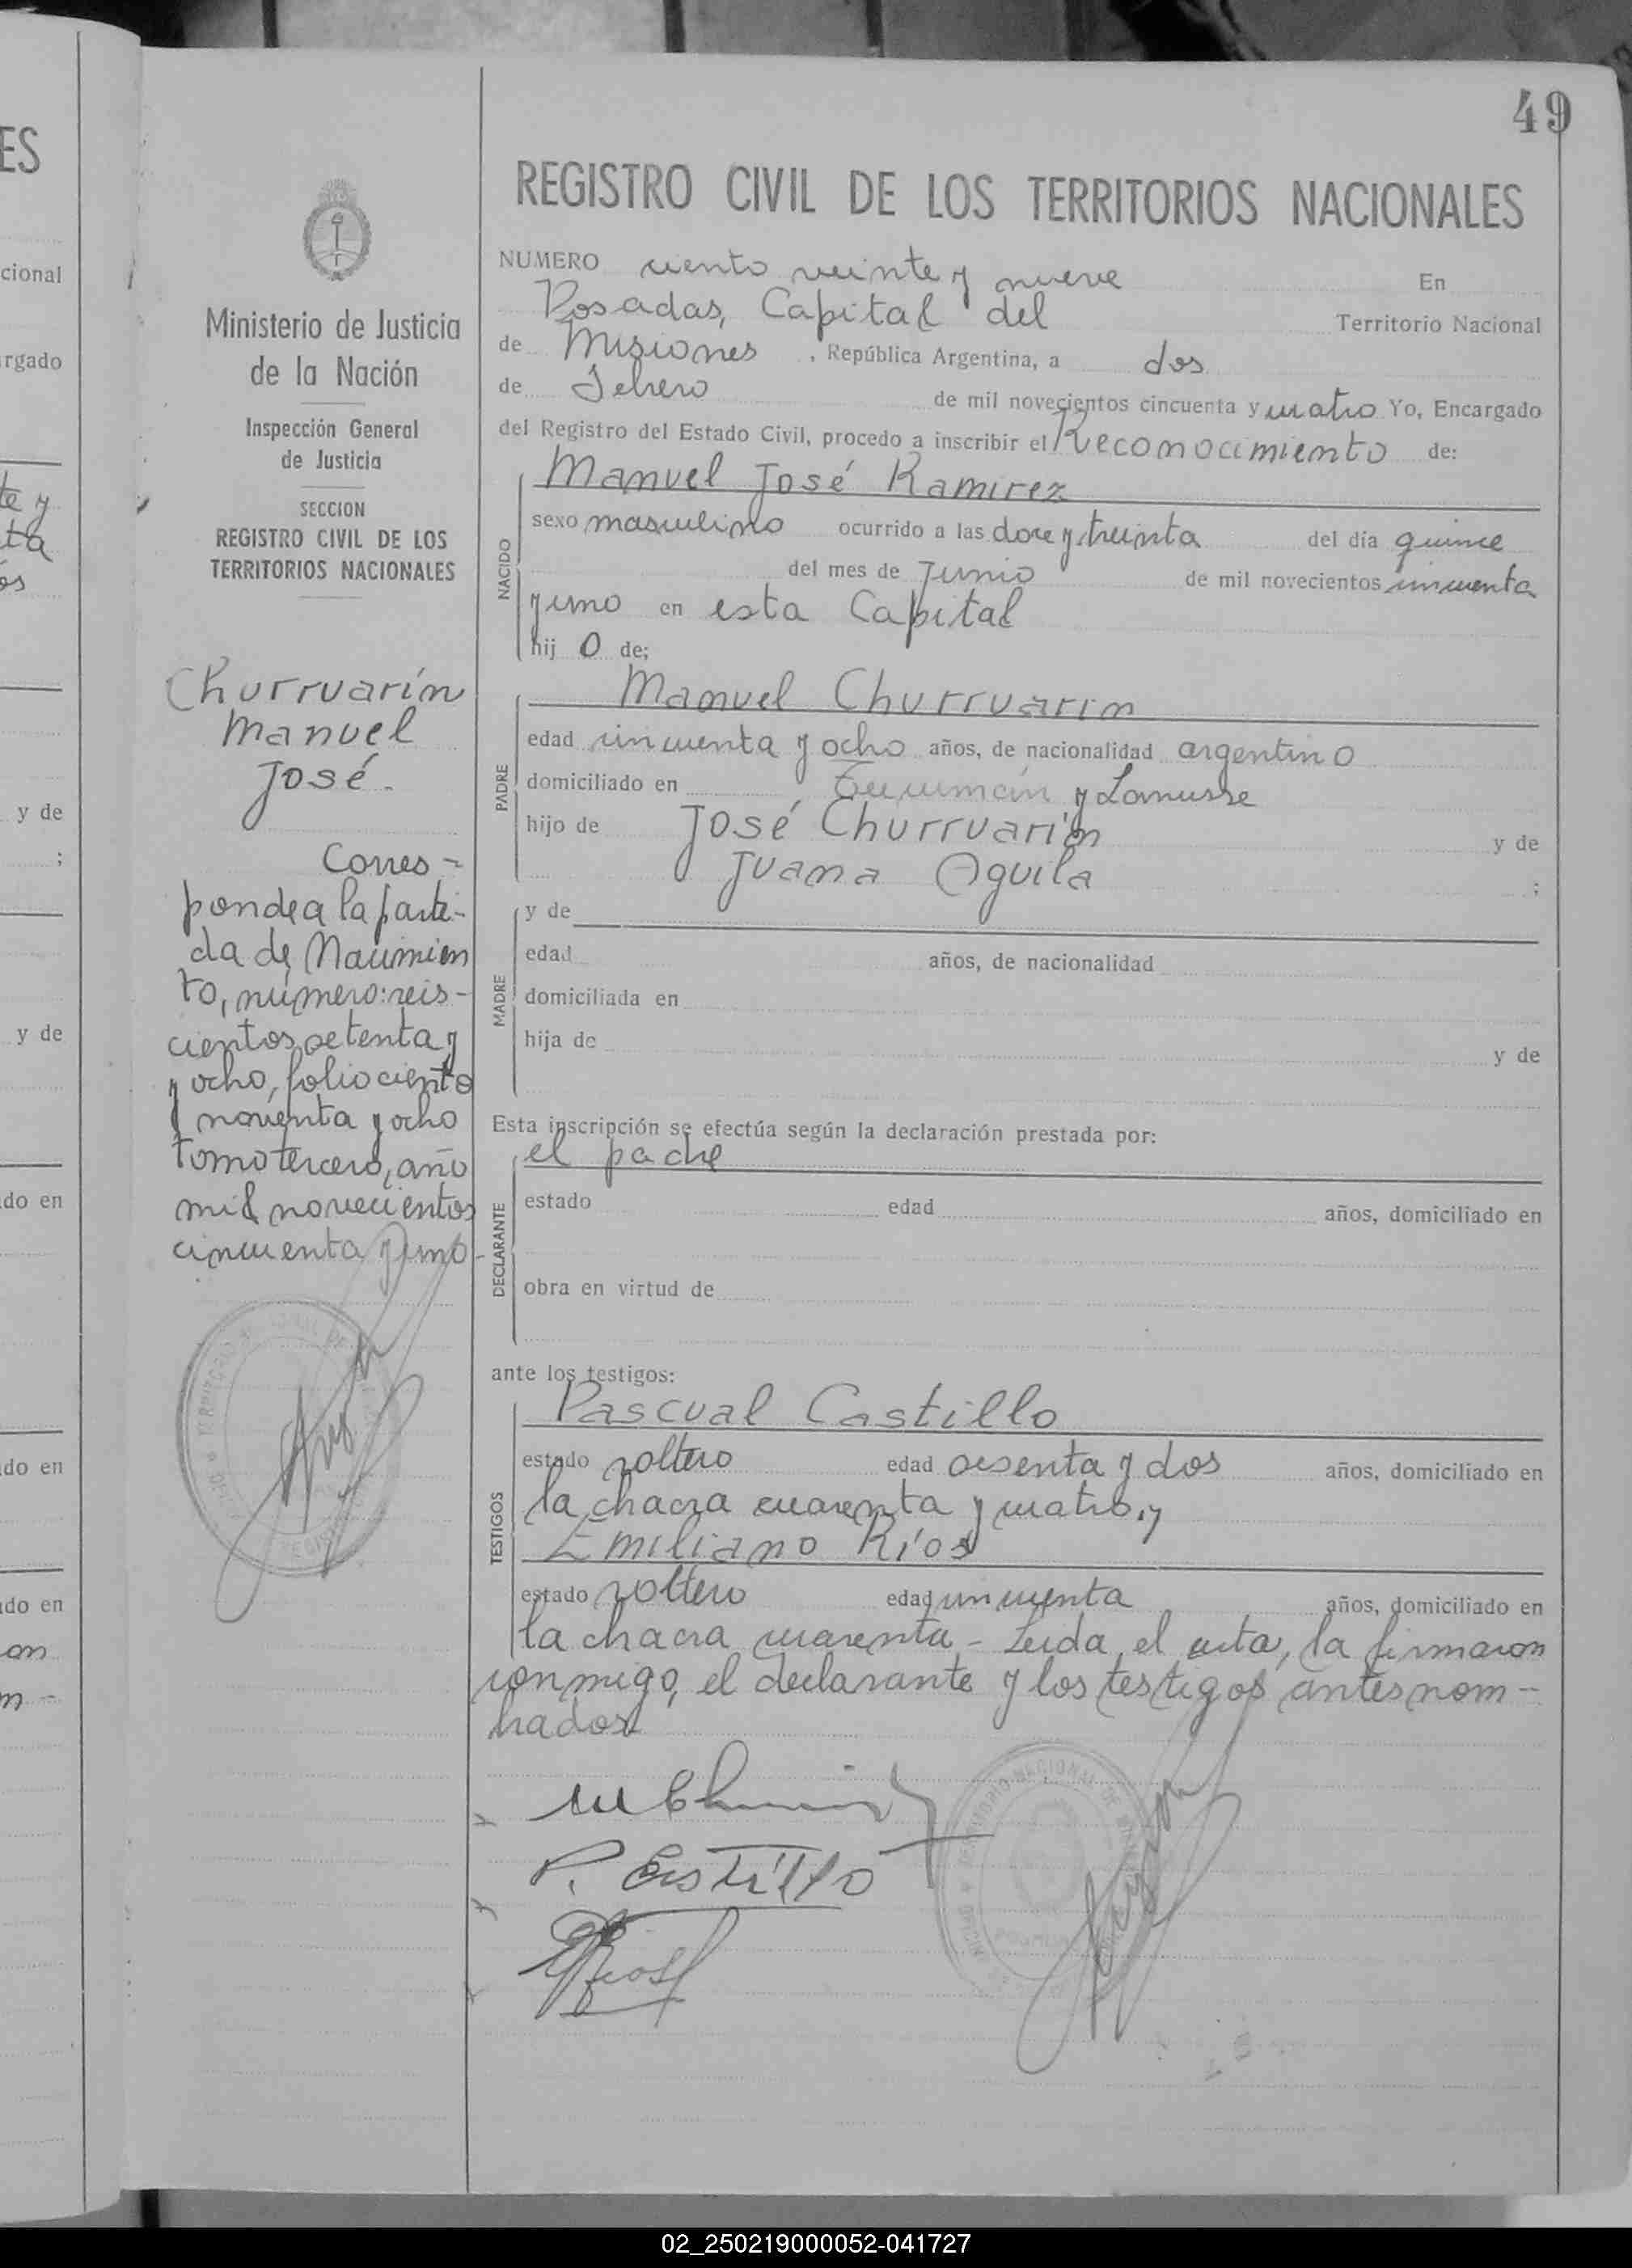 49
REGISTRO CIVIL DE LOS TERRITORIOS NACIONALES
NUMERO ciento veinte y nueve En
Posadas, Capital del Territorio Nacional
de Misiones , República Argentina, a dos
de Febrero de mil novecientos cincuenta y cuatro Yo, Encargado
del Registro del Estado Civil, procedo a inscribir el Reconocimiento de:
Manuel José Ramirez
NACIDO
sexo masculino ocurrido a las doce y treinta del día quince
del mes de Junio de mil novecientos cincuenta
y uno en esta Capital
hij o de;
PADRE
Manuel Churruarin
edad cincuenta y ocho años, de nacionalidad argentino
domiciliado en Tucumán y Lanusse
hijo de José Churruarín y de
Juana Aguila ;
MADRE
y de
edad años, de nacionalidad
domiciliada en
hija de y de
Esta inscripción se efectúa según la declaración prestada por:
DECLARANTE
el padre
estado edad años, domiciliado en
obra en virtud de
ante los testigos:
TESTIGOS
Pascual Castillo
estado soltero edad sesenta y dos años, domiciliado en
la chacra cuarenta y cuatro, y
Emiliano Ríos
estado soltero edad cincuenta años, domiciliado en
la chacra cuarenta - Leida el acta, la firmaron
conmigo, el declarante y los testigos antes nom-
brados.
P. Castillo
Ministerio de Justicia
de la Nación
Inspección General
de Justicia
SECCION
REGISTRO CIVIL DE LOS
TERRITORIOS NACIONALES
Churruarín
Manuel
José.
Corres-
ponde a la parti-
da de Nacimien
to, número: seis-
cientos setenta y
y ocho, folio ciento
noventa y ocho
tomo tercero, año
mil novecientos
cincuenta y uno-
ES
cional
rgado
te y
ta
os
y de
;
y de
do en
do en
do en
on
m -
02_250219000052-041727